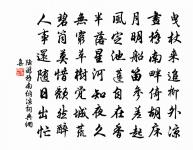 曳杖来追柳外凉
畫橋南畔倚胡床
月明船笛参差起
風定池蓮自在香
半落星河知夜久
無窮草樹覺城荒
碧筒莫惜頹然醉
人事還随日出忙
陸游詩橋南納涼